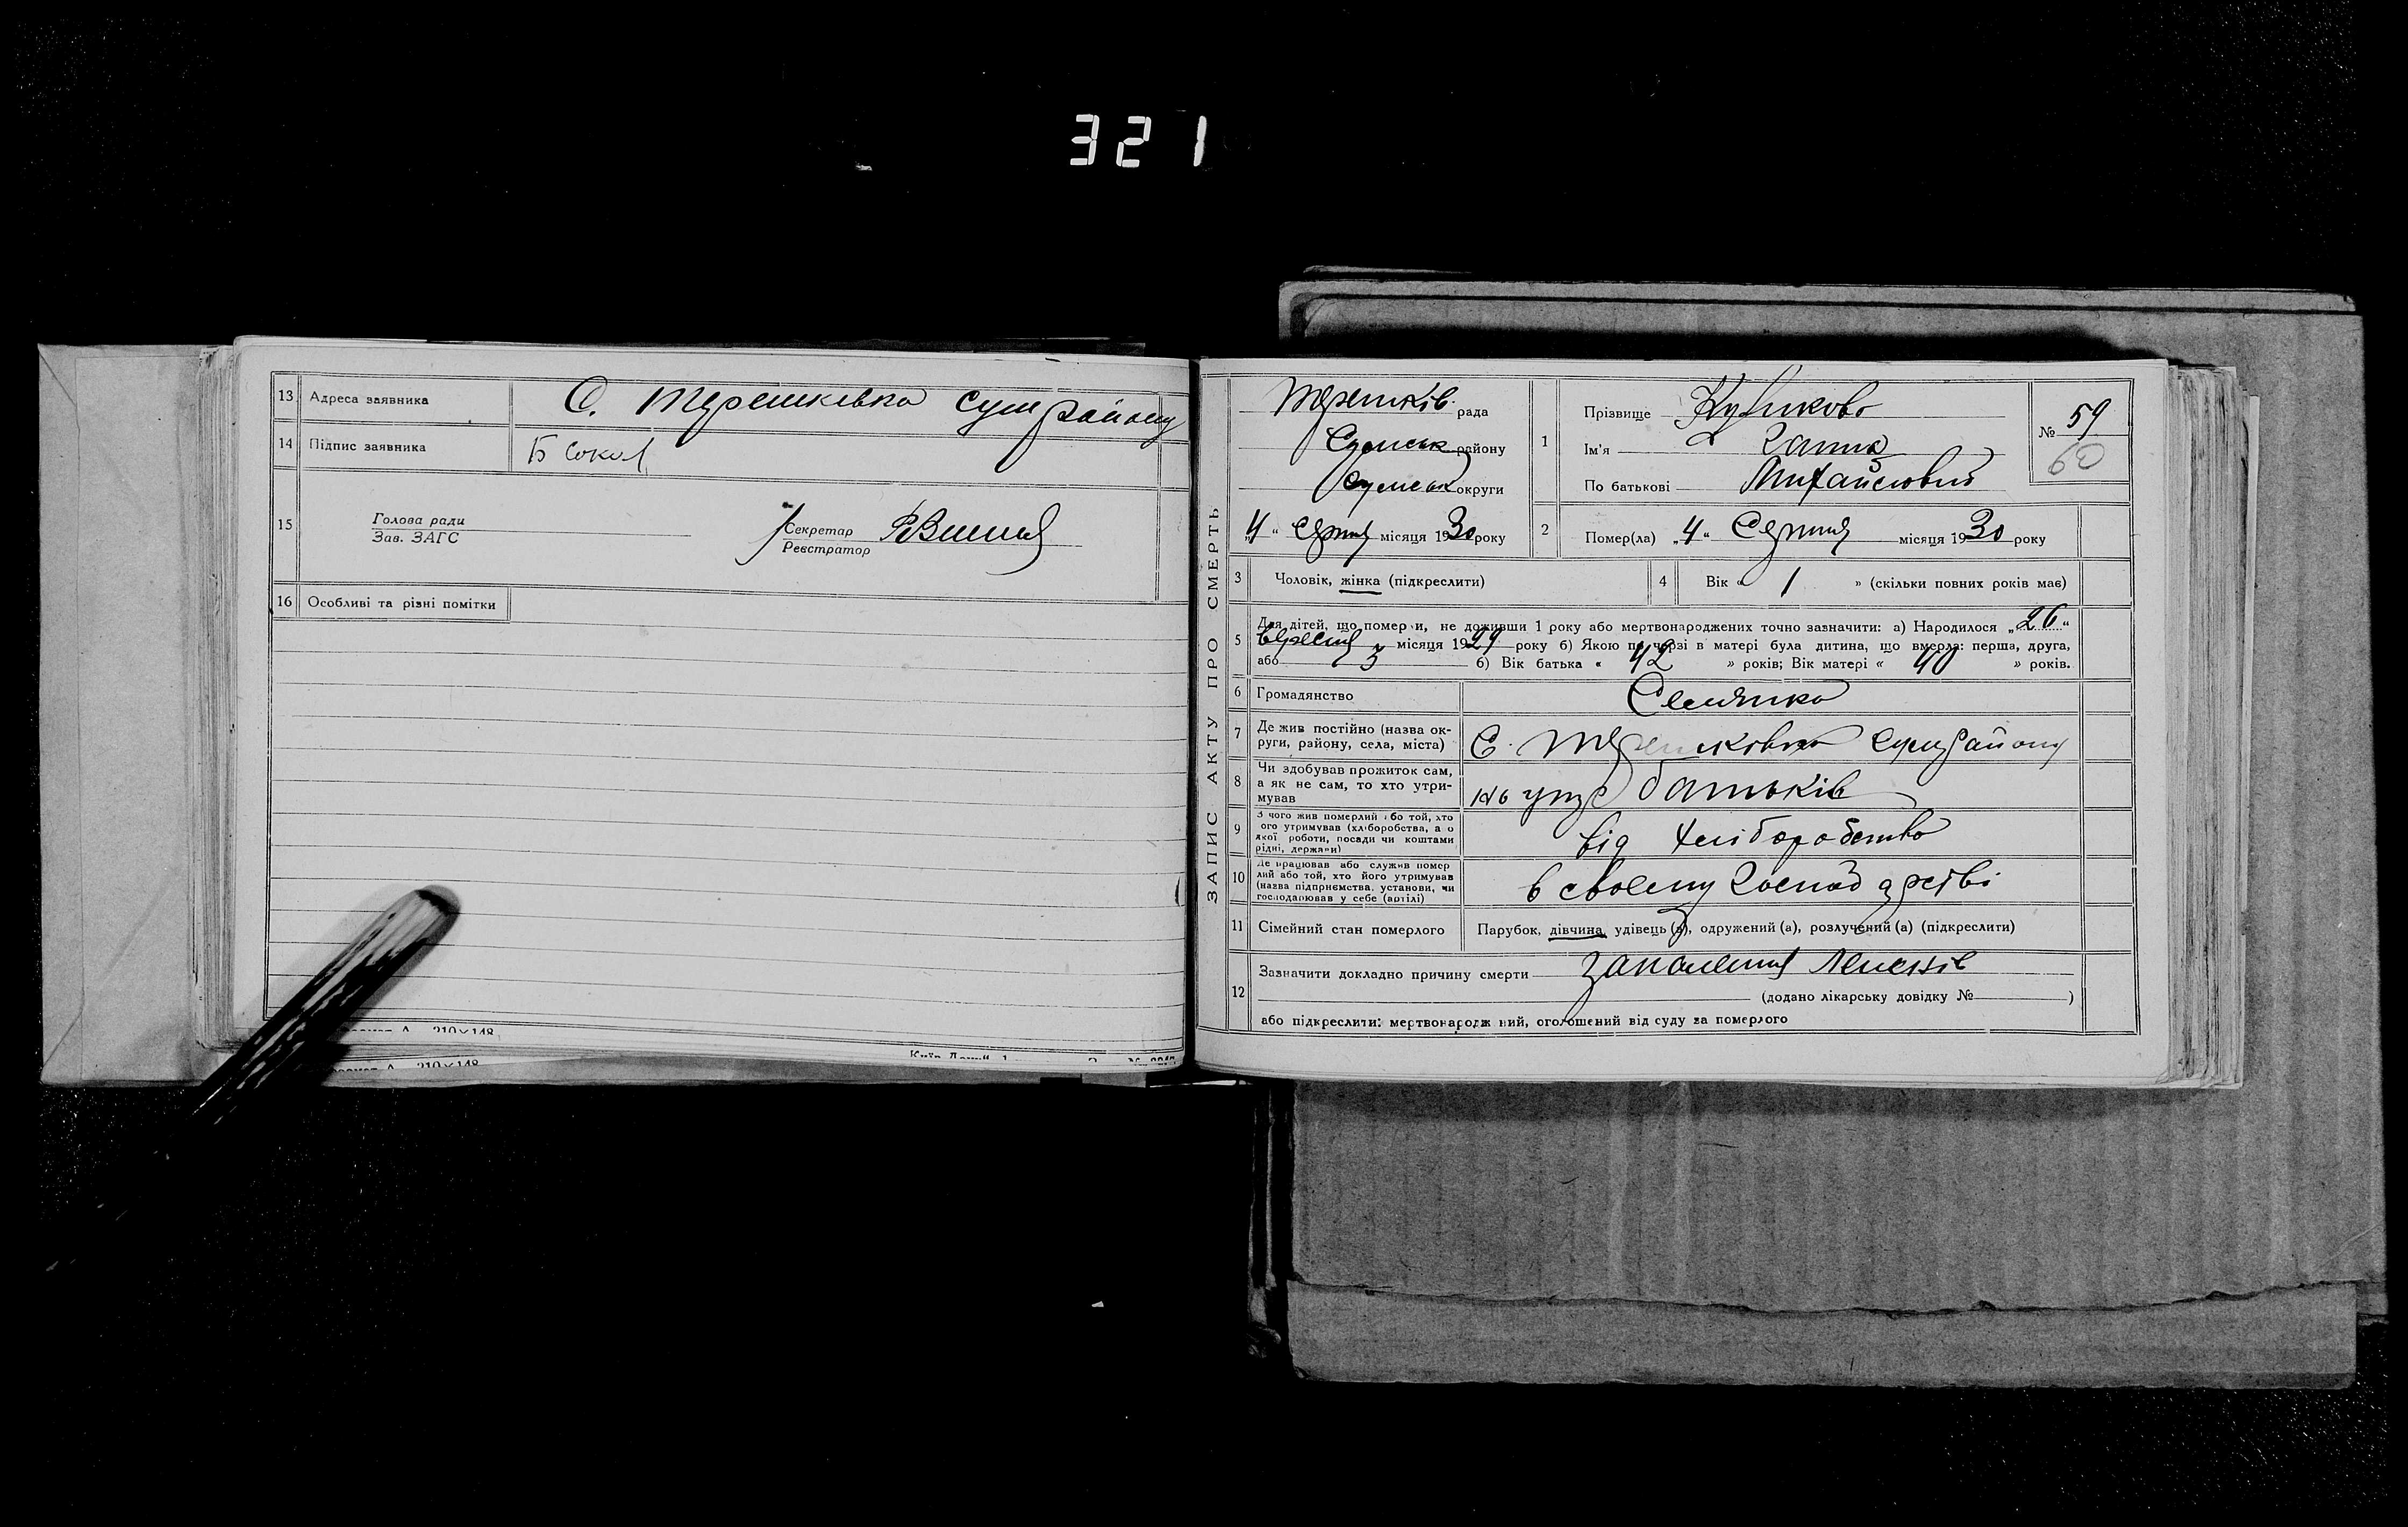 321
13 Адреса заявника С. Терешківка Сум району
14 Підпис заявника Б Сокол
15 Голова ради
Зав. ЗАГС
Секретар
Реєстратор
16 Особливі та різні помітки
210×148
210×148
ЗАПИС АКТУ ПРО СМЕРТЬ
Терешків. рада
Сумськ району
Сумськ округи
„4“ Серпня місяця 1930 року
1 Прізвище
Ім'я Ганна
По батькові Михайловна
№ 59
60
2 Помер(ла) „4“ Серпня місяця 1930 року
3 Чоловік, жінка (підкреслити)
4 Вік « 1 » (скільки повних років має)
5 Для дітей, що померли, не доживши 1 року або мертвонароджених точно зазначити: а) Народилося „26“
вересня місяця 1929 року б) Якою по черзі в матері була дитина, що вмерла: перша, друга,
або 3 б) Вік батька « 42 » років; Вік матері « 40 » років.
6 Громадянство Селянка
7 Де жив постійно (назва ок-
руги, району, села, міста) С. Терешківка Сум району
8 Чи здобував прожиток сам,
а як не сам, то хто утри-
мував на утр батьків
9 З чого жив померлий або той, хто
ого утримував (хліборобства, а о
якої роботи, посади чи коштами
рідні, держави) від хліборобства
10 Де працював або служив помер
лий або той, хто його утримував
(назва підприємства, установи, чи
господарював у себе (артілі) в своему господарстві
11 Сімейний стан померлого Парубок, дівчина, удівець (а), одружений (а), розлучений (а) (підкреслити)
12 Зазначити докладно причину смерти запалення легенів
(додано лікарську довідку № )
або підкреслити: мертвонародж ний, оголошений від суду за померлого